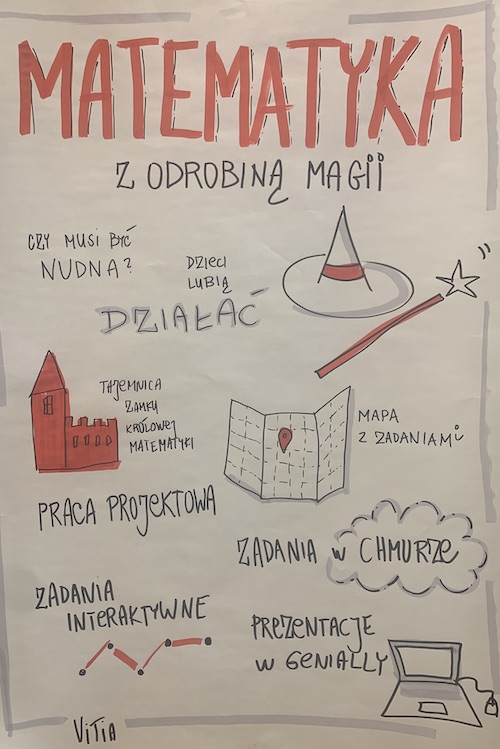 MATEMATYKA
Z ODROBINĄ MAGII
CZY MUSI BYĆ
NUDNA?
DZIECI
LUBIĄ
DZIAŁAĆ
TAJEMNICA
ZAMKU
KRÓLOWEJ
MATEMATYKI
MAPA
Z ZADANIAMI
PRACA PROJEKTOWA
ZADANIA W CHMURZE
ZADANIA
INTERAKTYWNE
PREZENTACJE
W GENIALLY
VITIA